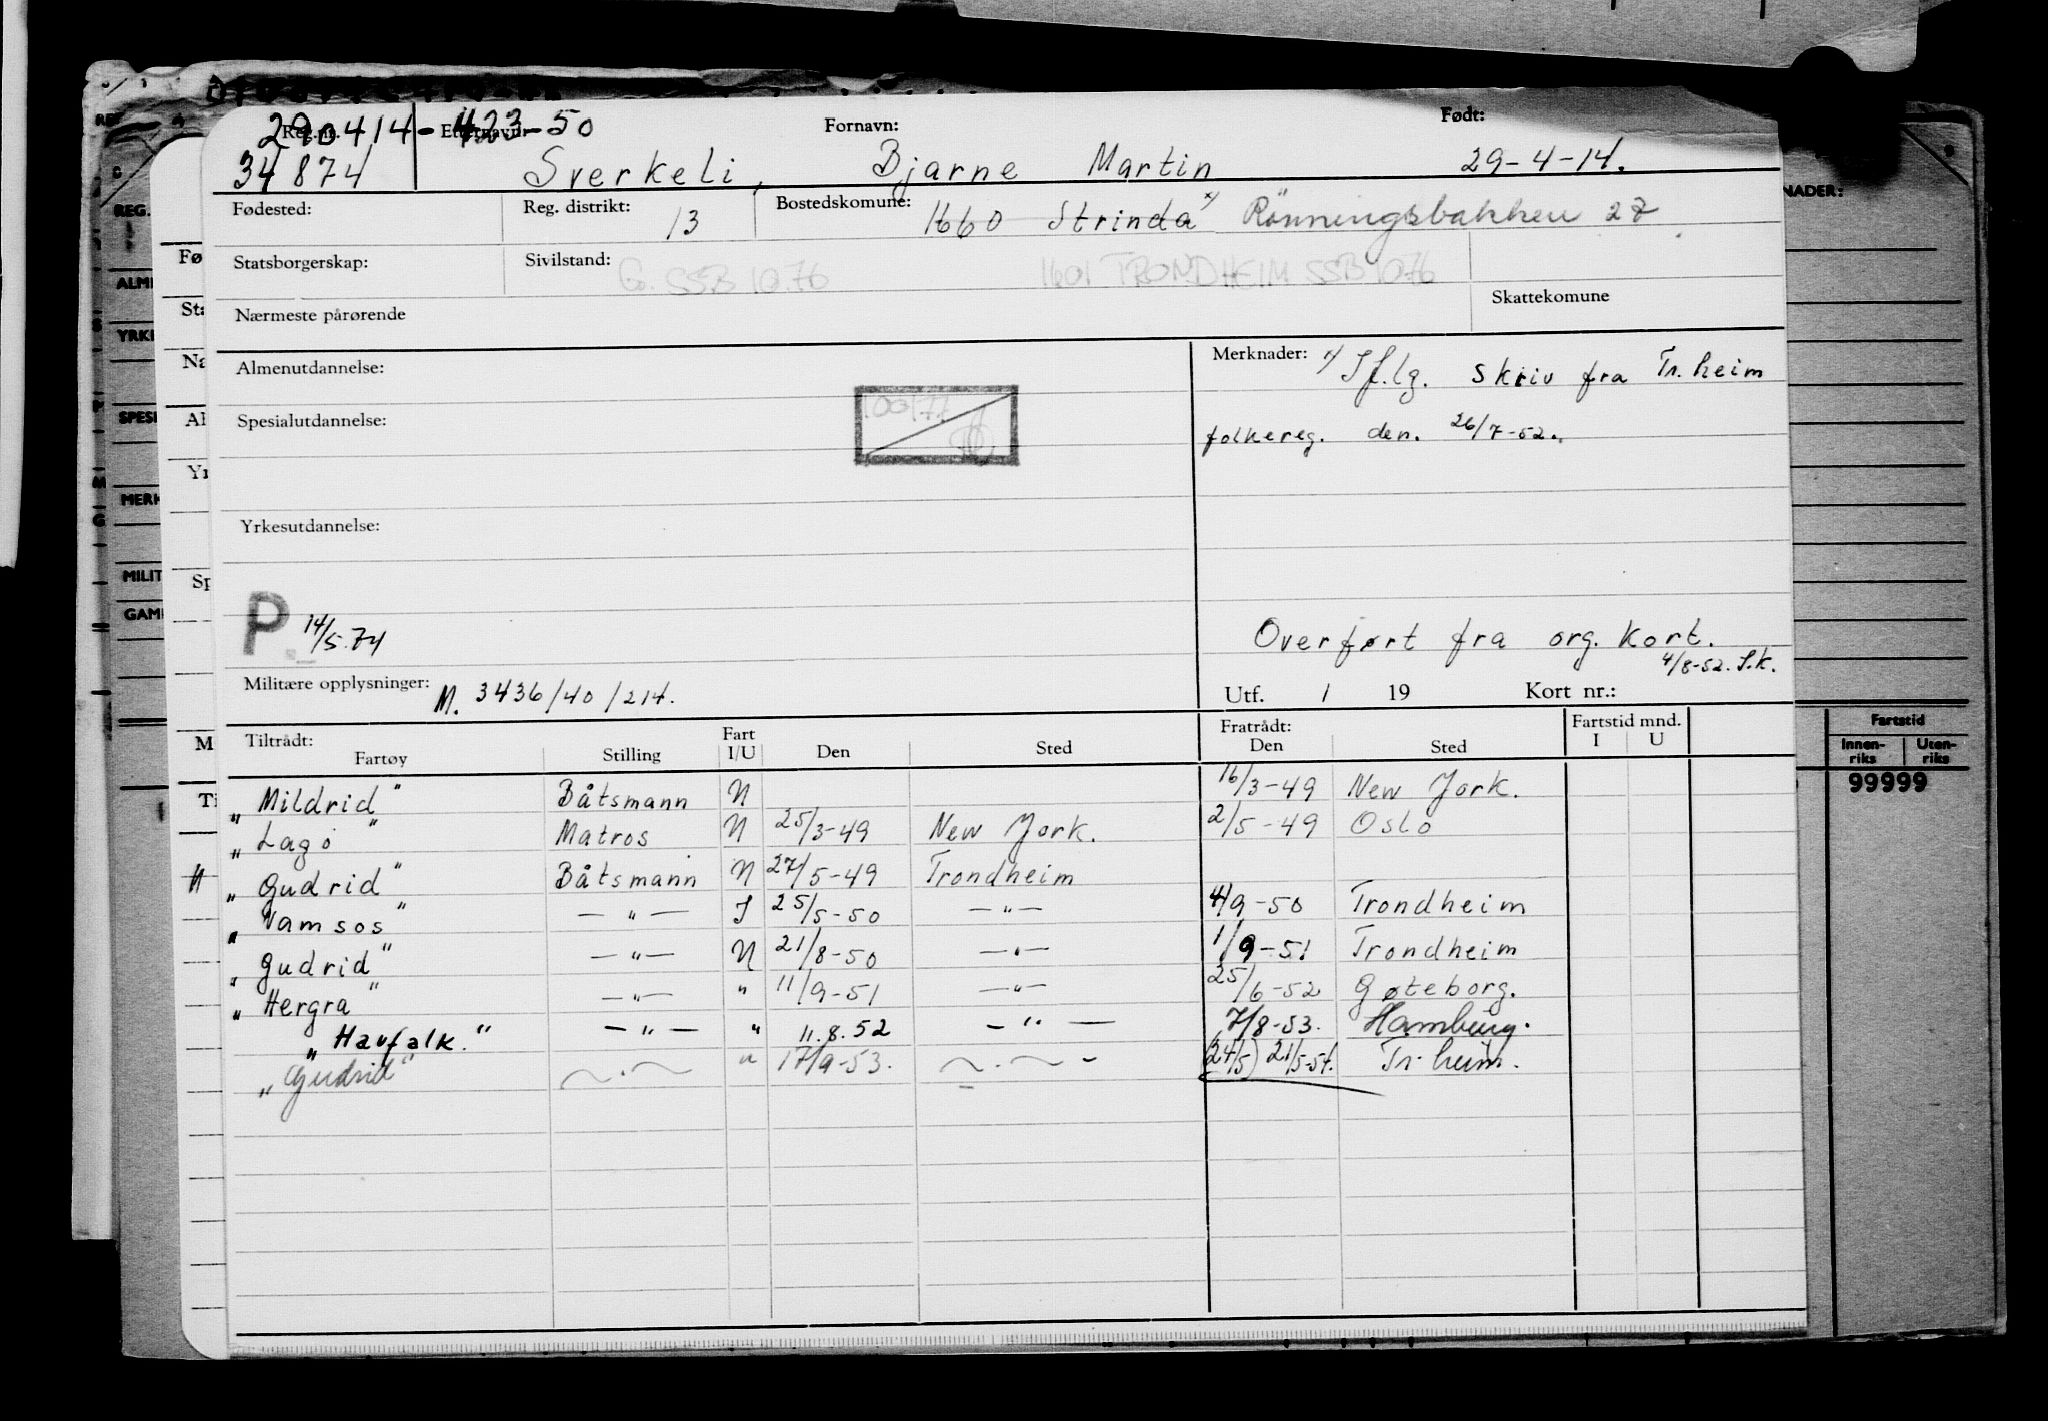 290414-42350
Reg.nr. Etternavn: Fornavn: Født:
34874 Sverkeli, Bjarne Martin 29-4-14.
Fødested: Reg. distrikt: 13 Bostedskomune: 1660 Strinda x) Rönningsbakken 27
Statsborgerskap: Sivilstand: G. SSB 10.76 1601 TRONDHEIM SSB 1076
Nærmeste pårørende Skattekomune
Almenutdannelse: Merknader: x) Iflg. skriv fra Tr.heim
Spesialutdannelse: folkereg. den. 26/7-52.
Yrkesutdannelse:
P 14/5.74
Overført fra org. kort.
4/8-52. S.K.
Militære opplysninger: M. 3436/40/214. Utf. / 19 Kort nr.:
Tiltrådt: Fart Fratrådt: Fartstid mnd.
Fartøy Stilling I/U Den Sted Den Sted I U
„Mildrid" Båtsmann U 16/3-49 New York.
„Lago" Matros U 25/3-49 New York. 2/5-49 Oslo
„Gudrid" Båtsmann U 27/5-49 Trondheim
„Namsos" —"— I 25/5-50 —"— 4/9-50 Trondheim
„Gudrid" —"— U 21/8-50 —"— 1/9-51 Trondheim
„Hergra" —"— " 11/9-51 —"— 25/6-52 Gøteborg.
„Havfalk." —"— " 11.8.52 —"— 7/8-53. Hamburg.
„Gudrid" —"— " 17/9-53. —"— (24/5) 21/5-54. Tr.heim.
REG.
ALM
YRK
SPESI
MERK
MILIT
GAM
Fø
Sta
Na
Al
Yr
Sp
M
Ti
NADER:
Fartstid
Innen-riks Uten-riks
99999